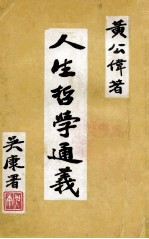 黃公偉著
人生哲學通義
吳康署